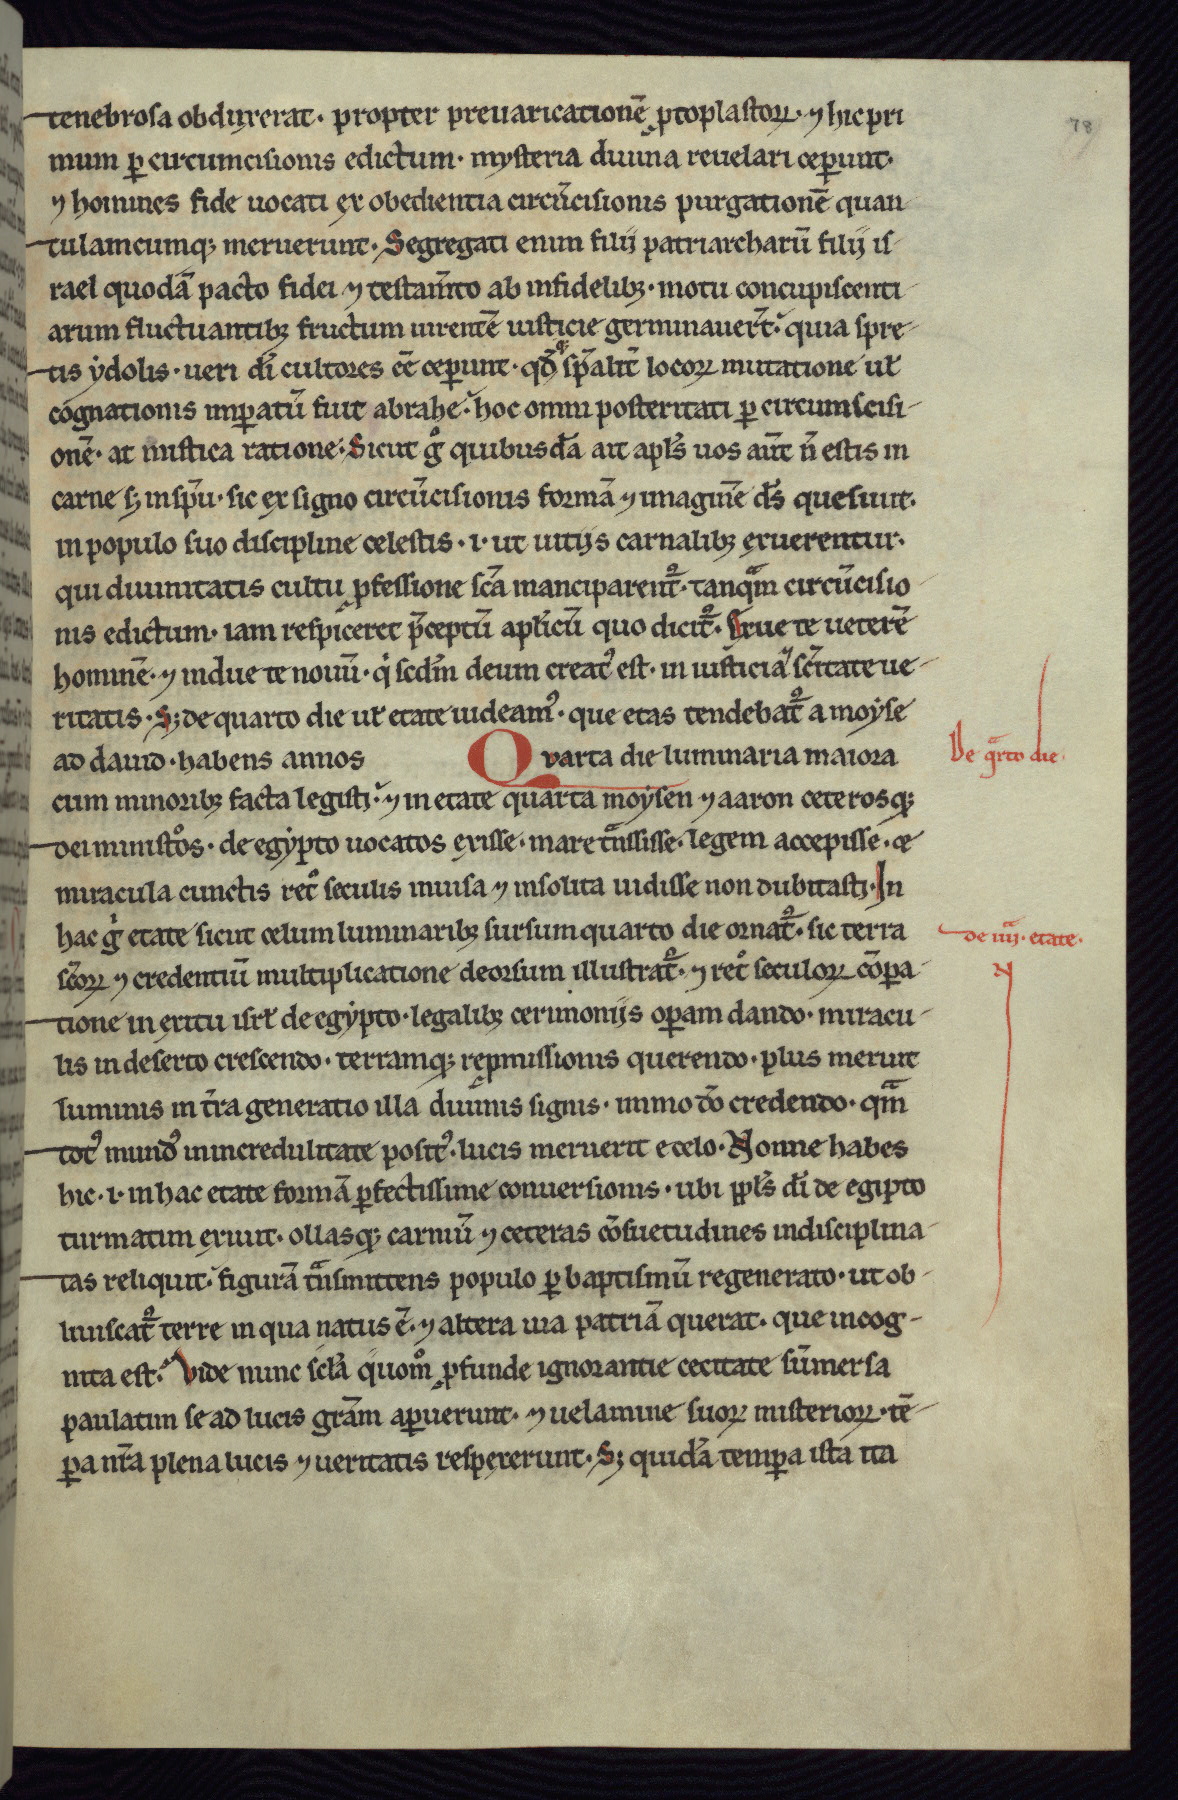 78
tenebrosa obduxerat· propter preuaricationē ꝓtoplastoꝝ· ⁊ hic pri
mum ꝑ circumcisionis edictum· mysteria diuina reuelari ceperunt·
⁊ homines fide uocati ex obedientia circūcisionis purgationē quan
tulamcumqꝫ meruerunt· Segregati enim filij patriarcharū filij is-
rael quodā pacto fidei ⁊ testam̄to ab infidelibꝫ· motu concupiscenti-
arum fluctuantibꝫ fructum uirentē iusticie germinauer̄t· quia spre-
tis ẏdolis· ueri dī cultores eē ceperunt· qđ sp̄alit̄ locoꝝ mutatione uł
cognationis imꝑatū fuit abrahe· hoc omni posteritati ꝑ circumscisi-
onē· at mistica ratione· Sicut g̊ quibusdā ait apl̄s uos aūt n̄ estis in
carne sꝫ in sp̄u· sic ex signo circūcisionis formā ⁊ imaginē dȩ̄s quesiuit·
in populo suo discipline celestis· i· ut uitijs carnalibꝫ exuerentur·
qui diuinitatis cultu ꝓfessione sc̄a manciparent᷑· tanqᷓm circūcisio-
nis edictum· iam respiceret p̄ceptū apl̄icū quo dicit᷑· Exue te ueterē
hominē· ⁊ indue te nouū· qi scdm̄ deum creatꝰ est· in iusticia ⁊ sc̄itate ue-
ritatis· Sꝫ de quarto die uł etate uideamꝰ· que etas tendebat᷑ a moẏse
ad dauid· habens annos Quarta die luminaria maiora
De qᷓrto die·
cum minoribꝫ facta legisti· ⁊ in etate quarta moẏsen ⁊ aaron ceterosqꝫ
dei ministros· de egẏpto uocatos exisse· mare tᷓnsisse· legem accepisse· ce
miracula cunctis ret᷒ seculis inuisa ⁊ insolita uidisse non dubitasti· In
hac g̊ etate sicut celum luminaribꝫ sursum quarto die ornat᷑· sic terra
de iiij· etate·
sc̄oꝝ ⁊ credentiū multiplicatione deorsum illustrat᷑· ⁊ ret᷒ seculoꝝ cōpa-
tione in exitu isrł de egẏpto· legalibꝫ cerimonijs oꝑam dando· miracu-
lis in deserto crescendo· terramqꝫ reꝓmissionis querendo· plus meruit
luminis in t̄ra generatio illa diuinis signis· immo dō credendo· qm̄
totꝰ mundꝰ in incredulitate positꝰ· lucis meruerit e celo· Nonne habes
hic· i· in hac etate formā ꝑfectissime conuersionis· ubi ppl̄s dī de egipto
turmatim exiuit· ollasqꝫ carniū ⁊ ceteras cōsuetudines indisciplina-
tas reliquit· figurā tᷓnsmittens populo ꝑ baptismū regenerato· ut ob-
liuiscat᷑ terre in qua natus ē· ⁊ altera uia patriā querat· que incog-
nita est· Vide nunc scl̄a quom̊ ꝓfunde ignorantie cecitate sūmersa
paulatim se ad lucis gr̄am aperuerunt· ⁊ uelamine suoꝝ misterioꝝ· tē-
ꝑa nr̄a plena lucis ⁊ ueritatis respexerunt· Sꝫ quidā tempa ista ita